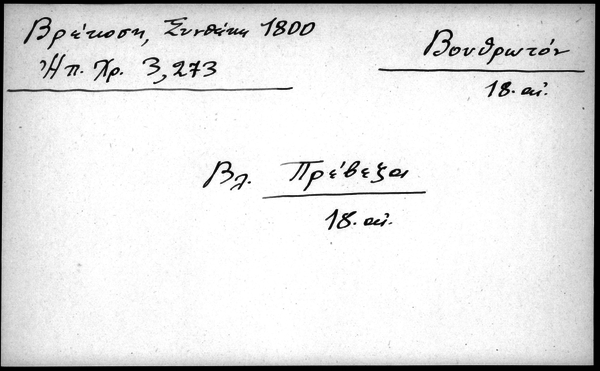 Βρέκοση, Συνθήκη 1800
Ἠπ. Χρ. 3,273
Βουθρωτόν
18. αἰ.
Βλ. Πρέβεζα
18. αἰ.